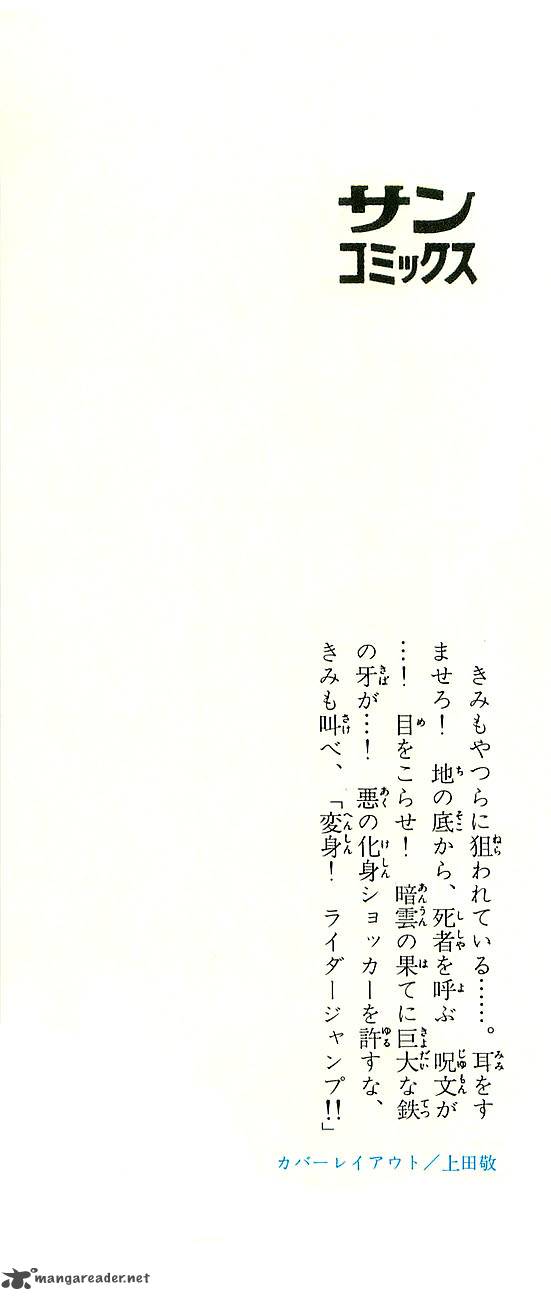 サン
コミックス
きみもやつらに狙われている……。耳をす
ませろ！　地の底から、死者を呼ぶ　呪文が
…！　目をこらせ！　暗雲の果てに巨大な鉄
の牙が…！　悪の化身ショッカーを許すな、
きみも叫べ、「変身！　ライダージャンプ!!」
カバーレイアウト／上田敬
mangareader.net